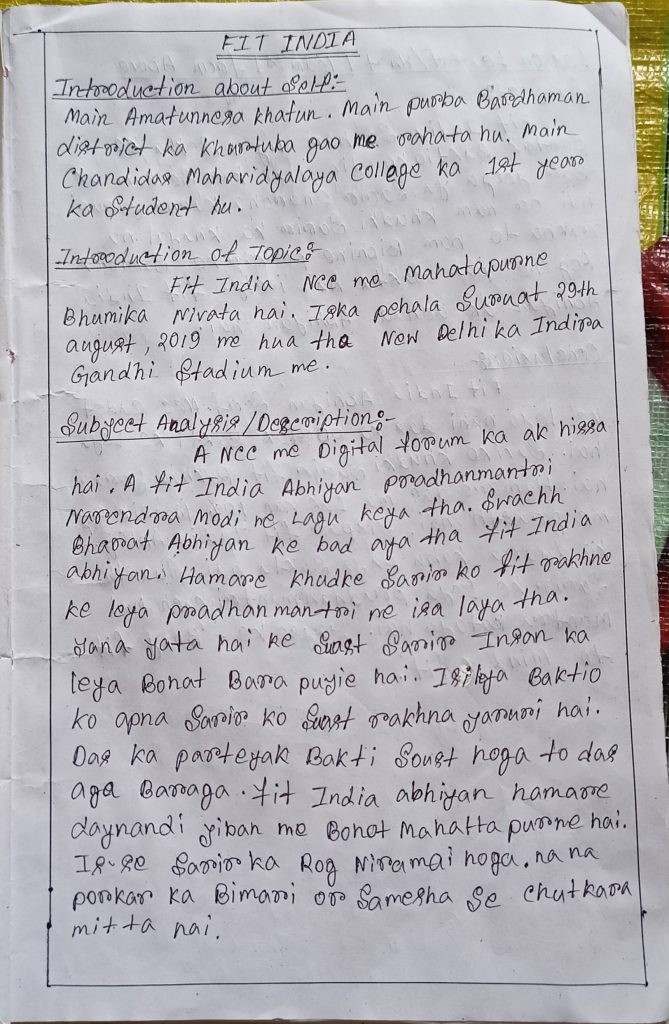 FIT INDIA
Introduction about Self:-
Main Amatunnesa khatun. Main purba Bardhaman
district ka Khurtuba gao me rahata hu. Main
Chandidas Mahavidyalaya Collage ka 1st year
ka Student hu.
Introduction of Topic:-
Fit India NCC me Mahatapurne
Bhumika Nivata hai. Iska pehala Suruat 29th
august, 2019 me hua tha New Delhi ka Indira
Gandhi Stadium me.
Subject Analysis/Description:-
A NCC me Digital forum ka ak hissa
hai. A fit India Abhiyan pradhanmantri
Narendra Modi ne Lagu keya tha. Swachh
Bharat Abhiyan ke bad aya tha fit India
abhiyan. Hamare khudke Sarir ko fit rakhne
ke leya pradhan mantri ne isa laya tha.
Jana jata hai ke Suast Sarir Insan ka
leya Bohat Bara pujie hai. Isileya Baktio
ko apna Sarir ko Suast rakhna jaruri hai.
Das ka parteyak Bakti Soust hoga to das
aga Baraga. fit India abhiyan hamare
daynandi jiban me Bohot Mahatta purne hai.
Is-se Sarir ka Rog Niramai hoga. na na
porkar ka Bimari or Samesha Se chutkara
mitta hai.